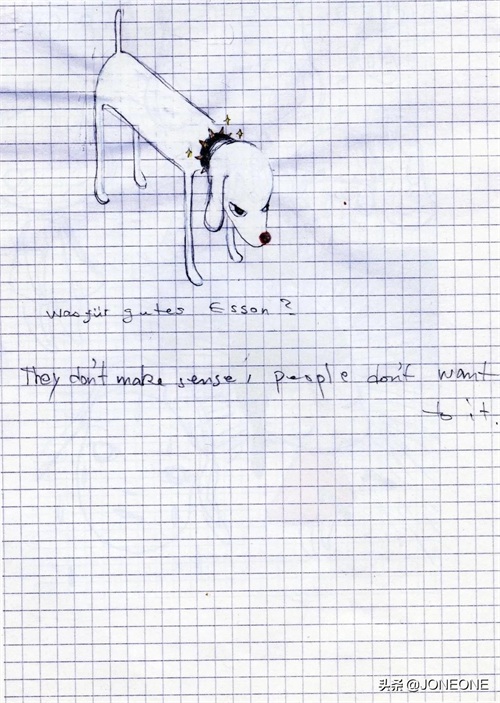 Was für gutes Esson?
They don't make sense, people don't want
to it.
头条 @JONEONE